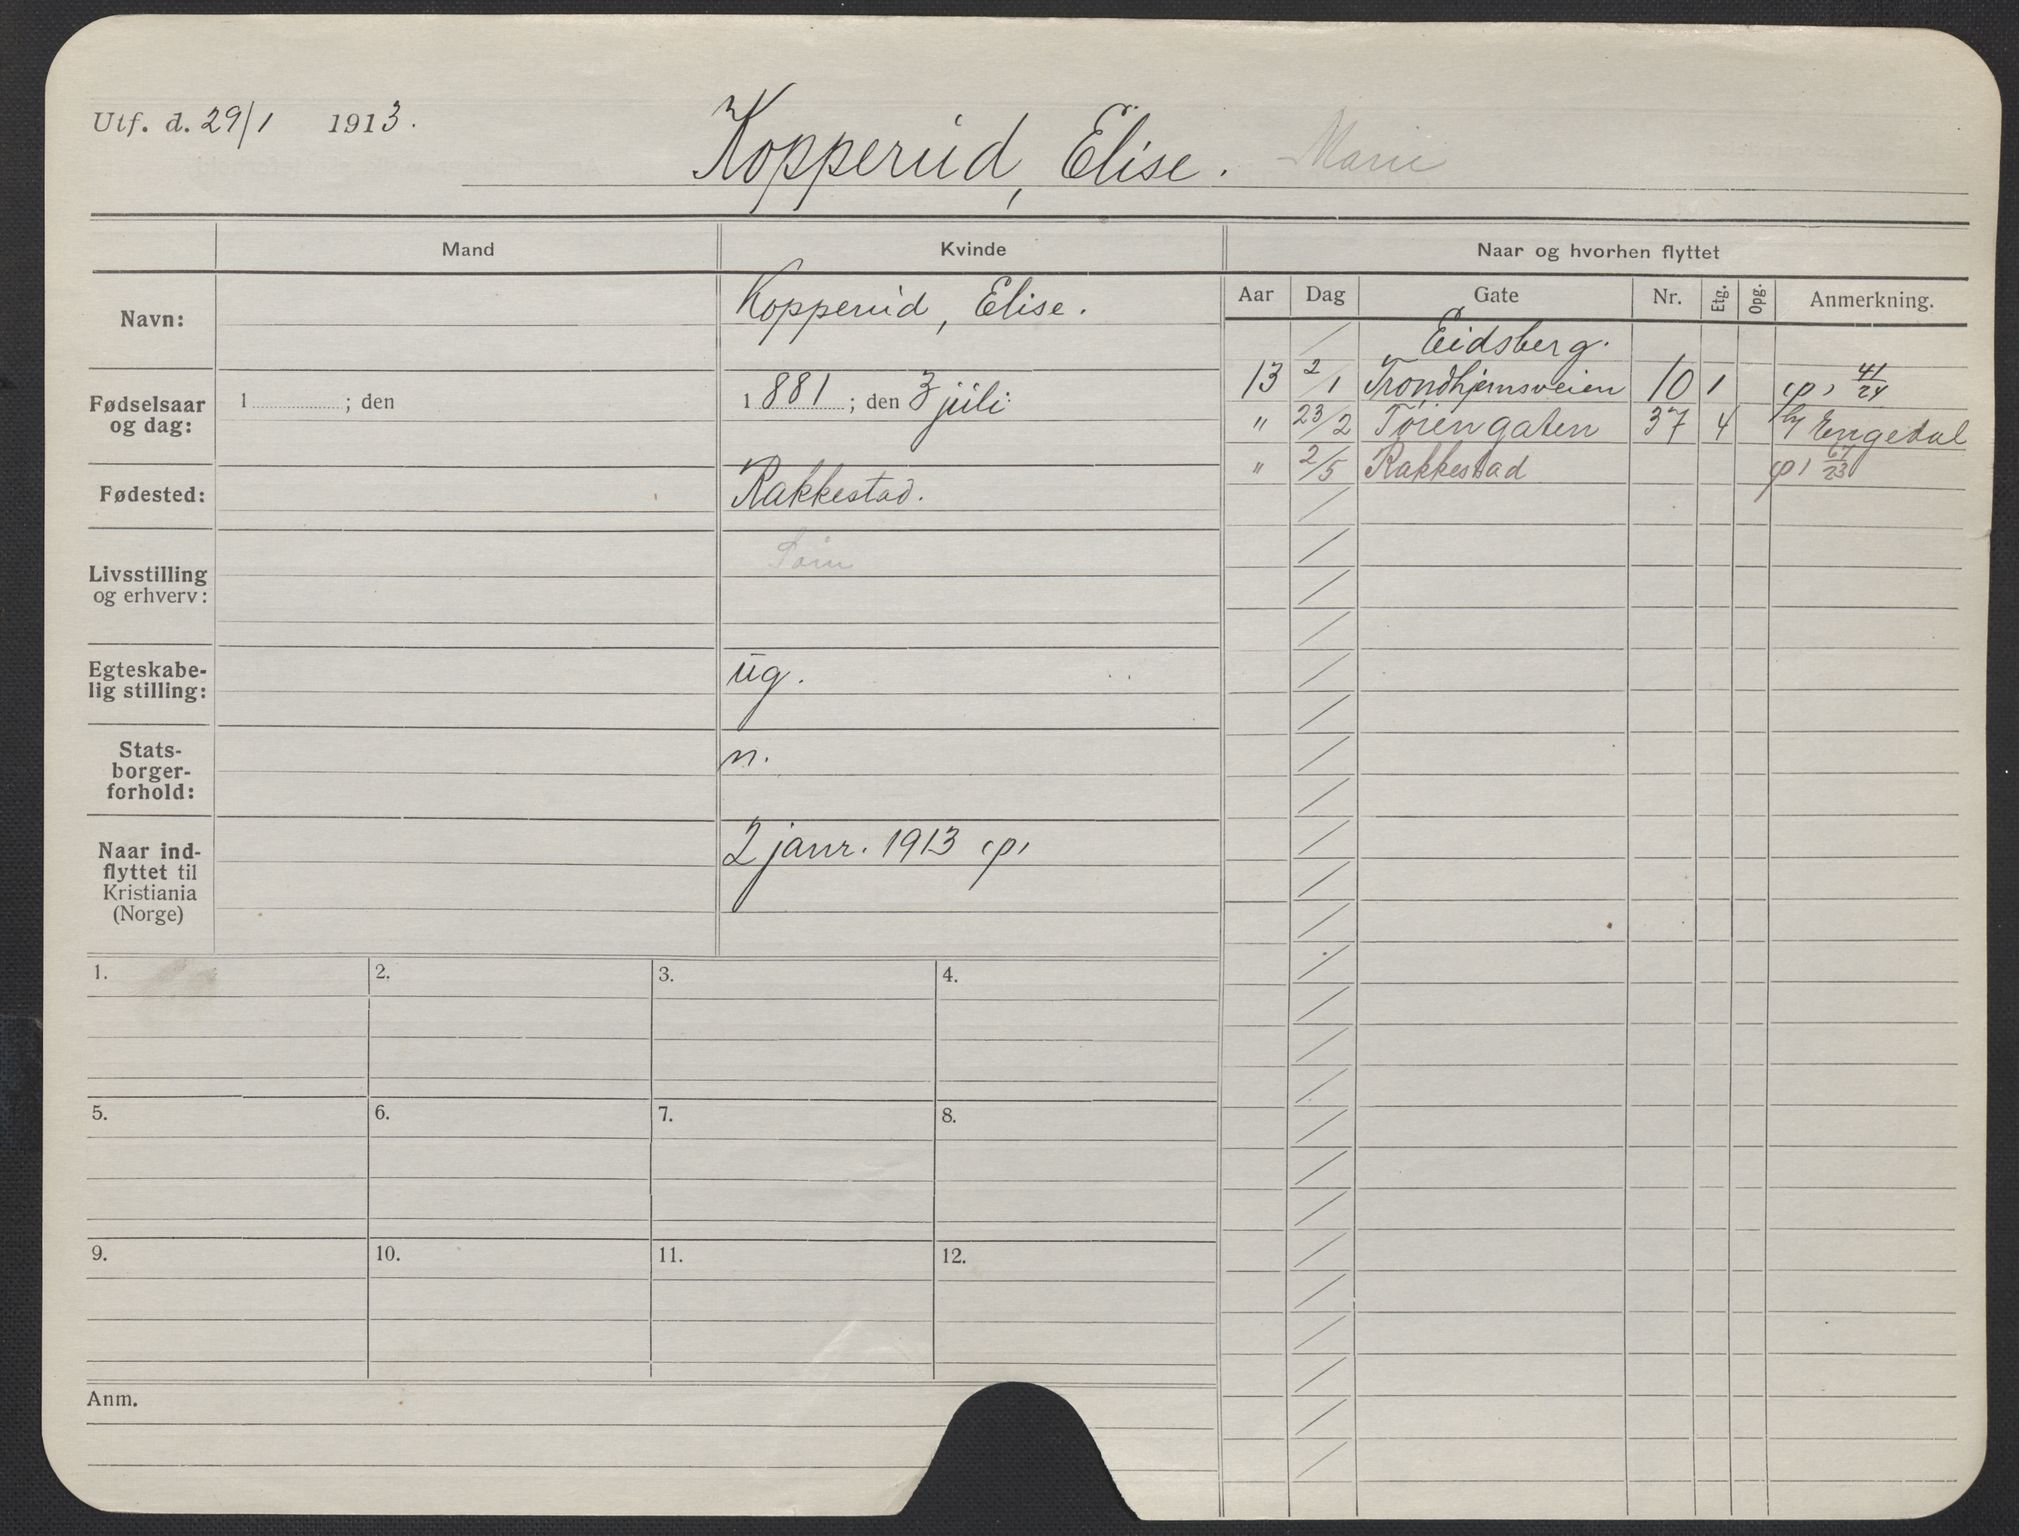 Utf. d. 29/1 1913.
Kopperud, Elise. Marie
Mand
Kvinde
Naar og hvorhen flyttet
Navn:
Kopperud, Elise.
Fødselsaar og dag:
1 ; den
1881 ; den 3 juli
Fødested:
Rakkestad.
Livsstilling og erhverv:
Egteskabelig stilling:
ug.
Statsborgerforhold:
n.
Naar indflyttet til Kristiania (Norge)
2 janr. 1913 p,
Aar Dag Gate Nr. Etg. Opg. Anmerkning.
/ Eidsberg.
13 2/1 Trondhjemsveien 10 1 p, 41/24
" 23/2 Tøiengaten 37 4 Engedal
" 2/5 Rakkestad p, 67/23
1. 2. 3. 4.
5. 6. 7. 8.
9. 10. 11. 12.
Anm.